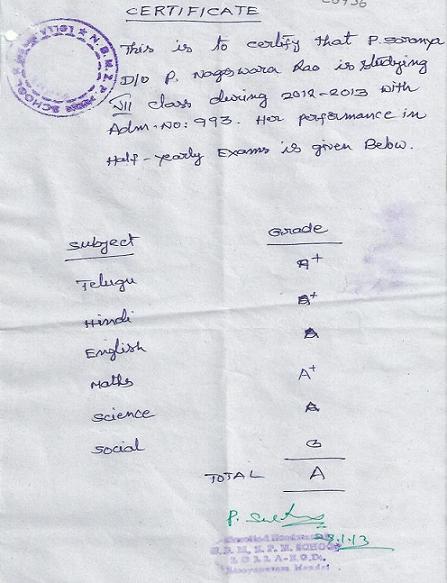 CERTIFICATE
This is to certify that P. Saranya
D/o P. Nageswara Rao is studying
VII class during 2012-2013 with
Adm-No: 993. Her performance in
Half-yearly Exams is given Below.
Subject Grade
Telugu A+
Hindi A+
English A
Maths A+
Science A
Social B
TOTAL A